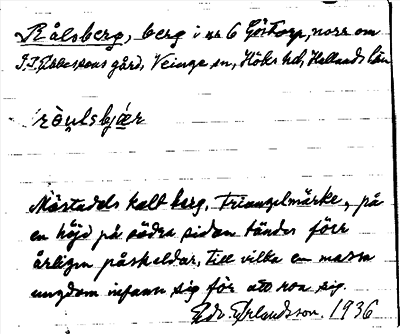 Rålsberg, berg i nr 6 Göstorp, norr om
gård, Veinge sn, Höks hd, Hallands län
Mästadels kalt berg, Triangelmärke, på
en höjd på södra sidan tändes förr
årligen påskeldar, till vilka en massa
ungdom infann sig för att roa sig.
Edv. Erlandsson. 1936